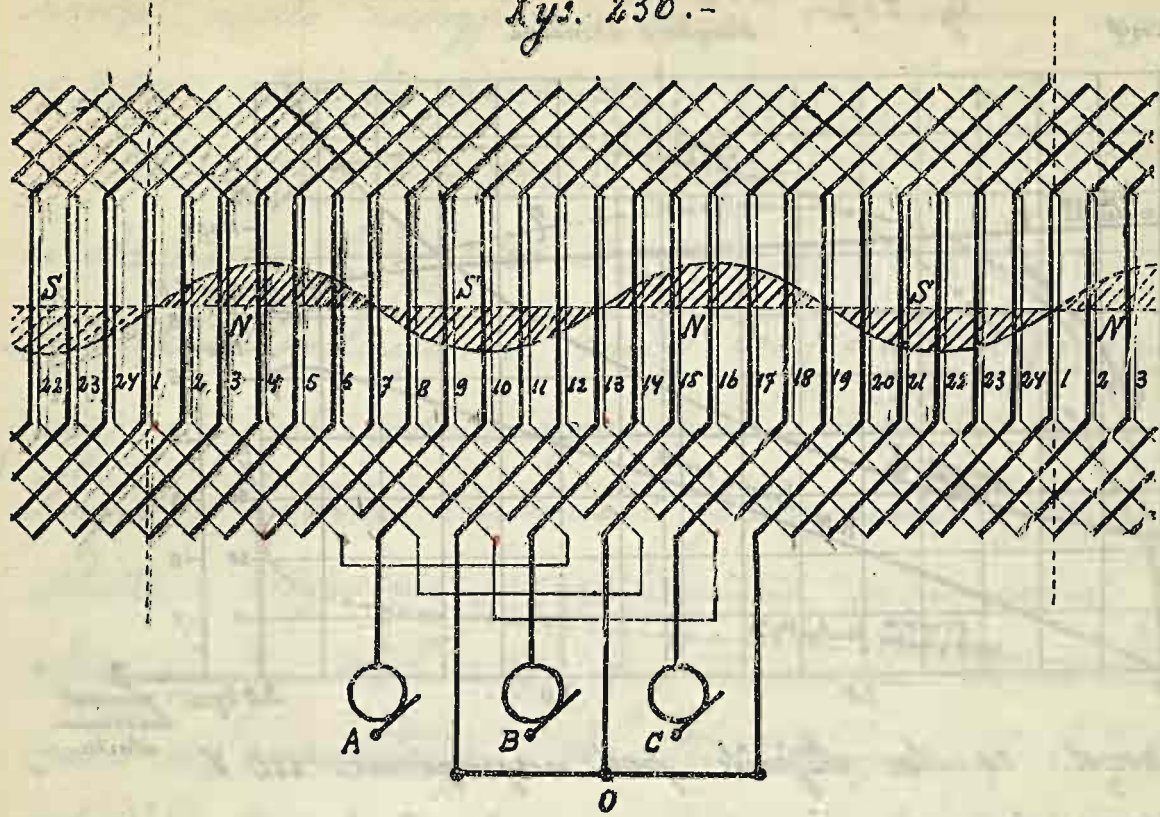 Куз. 230.-
S S S
N N N
22 23 24 1 2 3 4 5 6 7 8 9 10 11 12 13 14 15 16 17 18 19 20 21 22 23 24 1 2 3
A B C
O